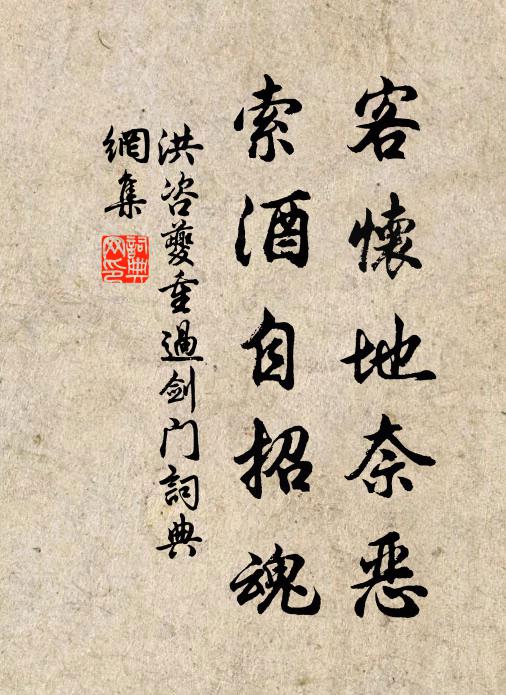 客懷地奈惡
索酒自招魂
洪咨夔重過劍门詞典
網集
詞典
网印